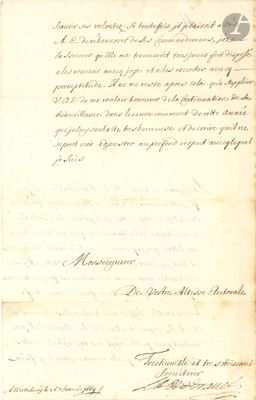 Scavoir ses volontez. Si toutefois, il plaisoit a V.
A. E. de m'honnorer de ses Commandements, je
la ssurer qu'elle me trouveroit tousjours fort disposé
a les recevoir avec joye et a les executer avec
promptitude. Il ne me reste apres cela qu'a supplier
V. A. E. de me vouloir honnorer de la Continuation de sa
bienveillance dans le commencement de cette Année
que je luy souhaitte tres heureuse, et de croire qu'il ne
se peut rien adjouster au profond respect avec lequel
je suis
Monseigneur
De Vostre Altesse Electorale
Tres humble et tres obeissant
Serviteur